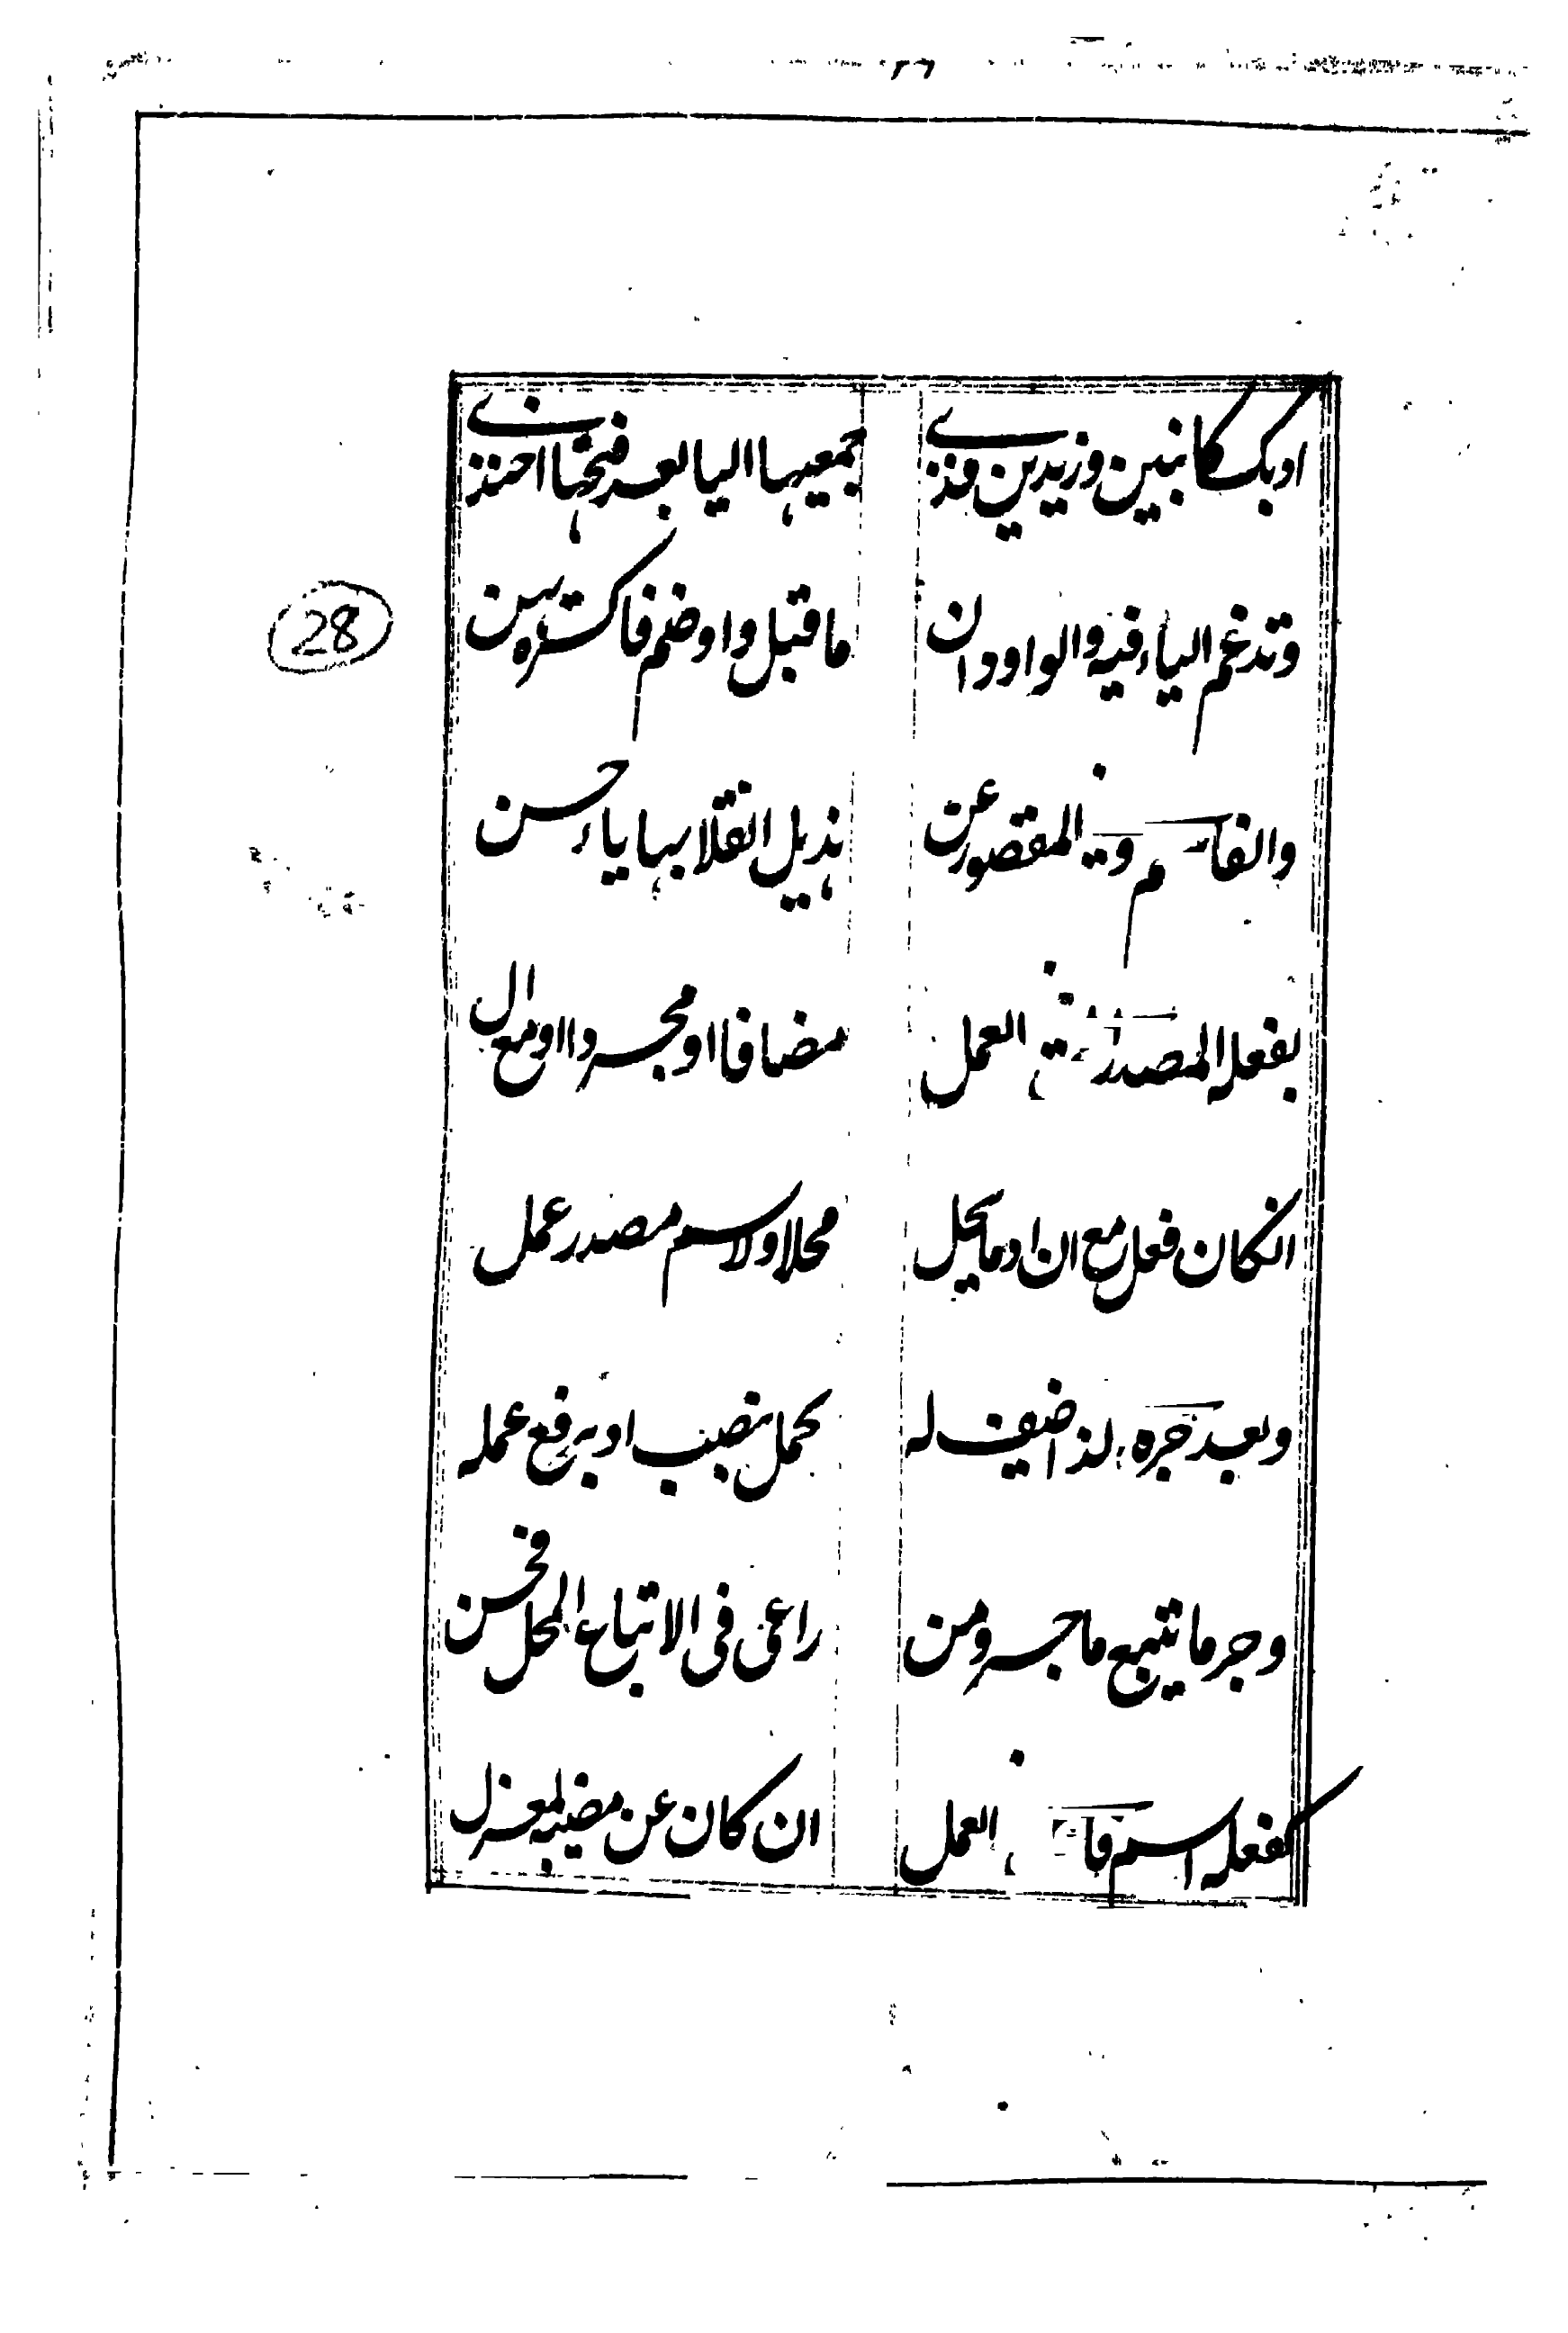 اوبک کابنین وزیدین فذی جمیعها الیا بعد فتحها احتذی
وتدغم الیاء فیه والواو وان ما قبل واو ضم فاکسره یهن
والفا سلم وفی المقصور عن هذیل انقلابها یاء حسن
بفعله المصدر فی العمل مضافا او مجردا او مع ال
انکان فعل مع ان او ما یحل محله ولاسم مصدر عمل
وبعد جره الذ اضیف له کمل بنصب او برفع عمله
وجر ما یتبع ما جر ومن راعی فی الاتباع المحل فحسن
کفعله اسم فا العمل ان کان عن مضیه بمعزل
28